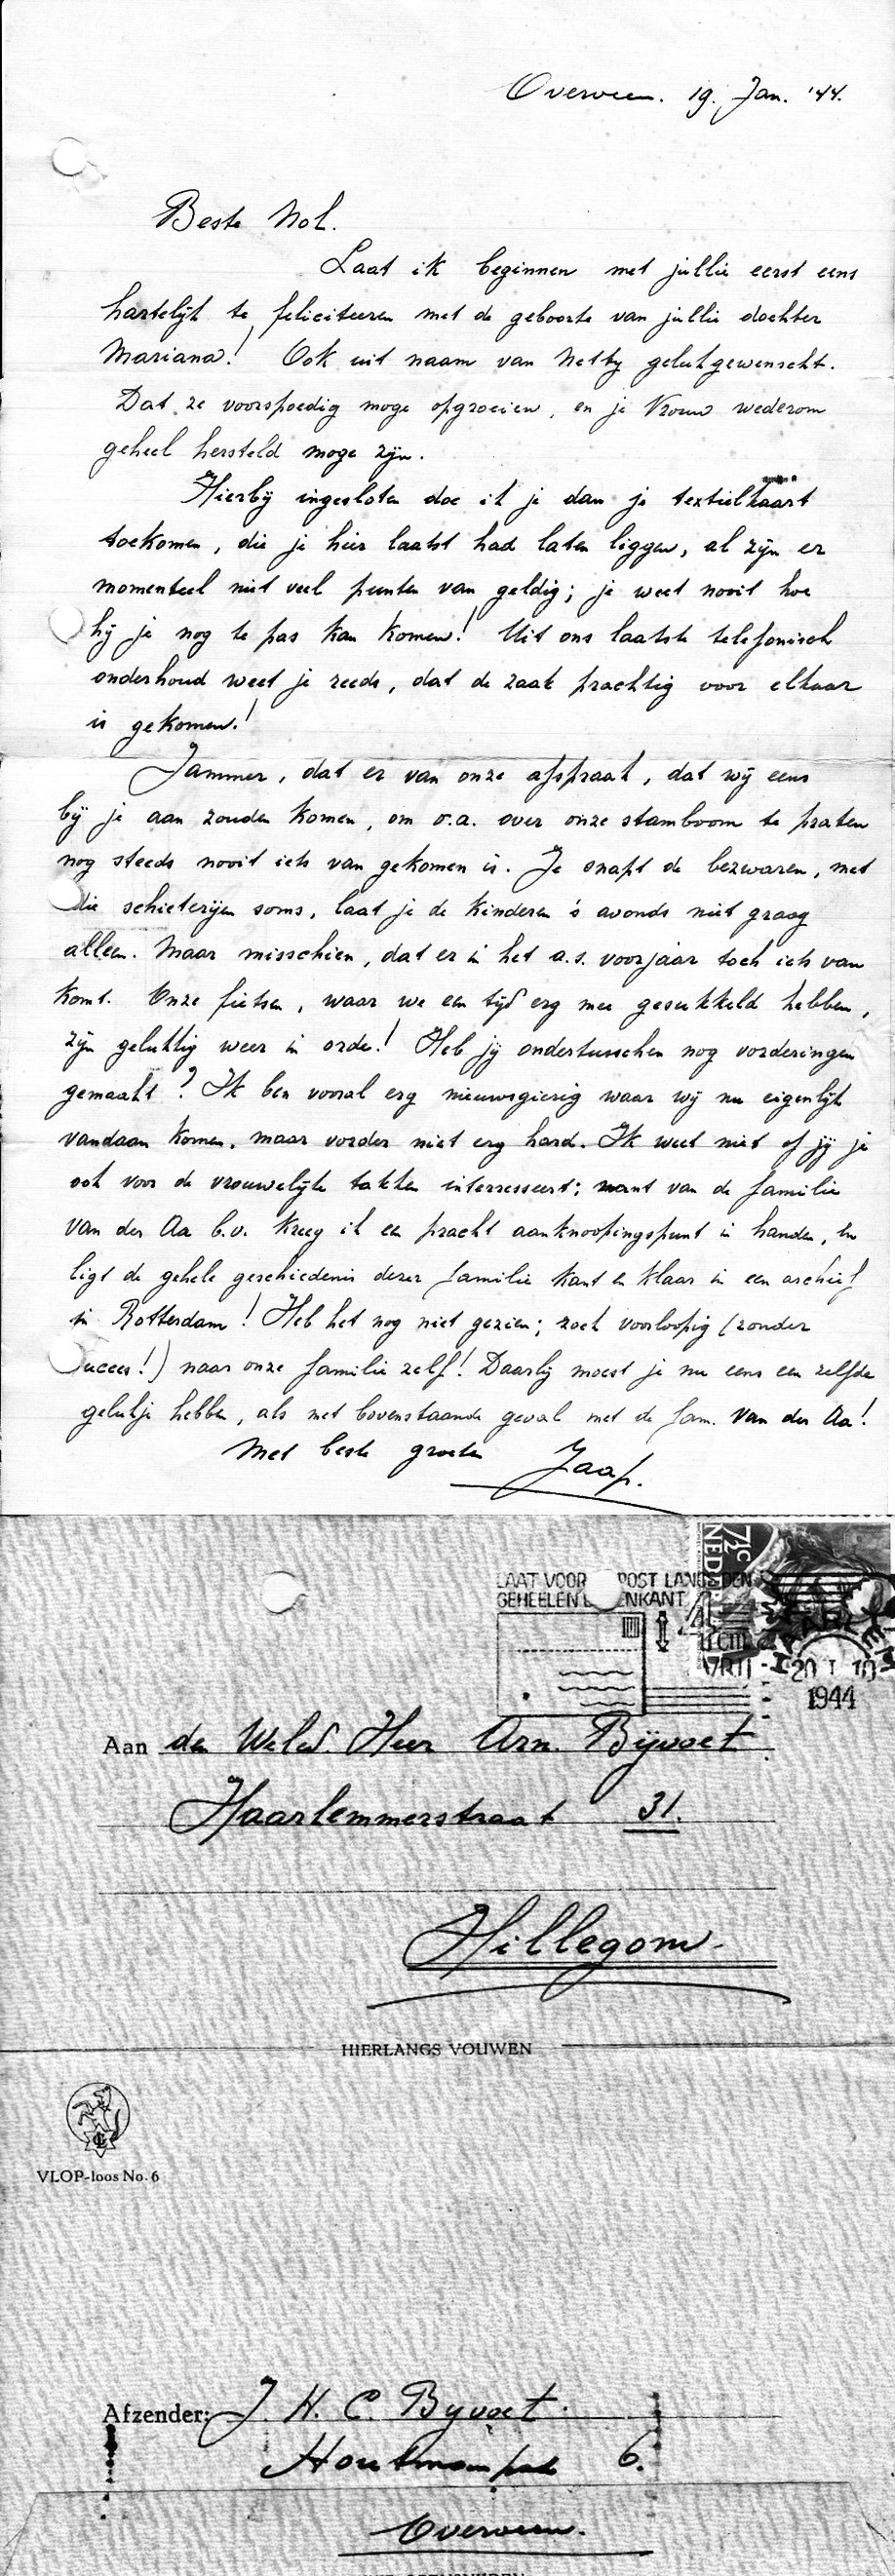 Overveen. 19. Jan. '44.
Beste Nol.
Laat ik beginnen met jullie eerst eens
hartelijk te feliciteeren met de geboorte van jullie dochter
Mariana! Ook uit naam van Netty gelukgewenscht.
Dat ze voorspoedig moge opgroeien, en je Vrouw wederom
geheel hersteld moge zijn.
Hierbij ingesloten doe ik je dan je textielkaart
toekomen, die je hier laatst had laten liggen, al zijn er
momenteel niet veel punten van geldig; je weet nooit hoe
hij je nog te pas kan komen! Uit ons laatste telefonisch
onderhoud weet je reeds, dat de zaak prachtig voor elkaar
is gekomen!
Jammer, dat er van onze afspraak, dat wij eens
bij je aan zouden komen, om o.a. over onze stamboom te praten
nog steeds nooit iets van gekomen is. Je snapt de bezwaren, met
die schieterijen soms, laat je de kinderen 's avonds niet graag
alleen. Maar misschien, dat er in het a.s. voorjaar toch iets van
komt. Onze fietsen, waar we een tijd erg mee gesukkeld hebben,
zijn gelukkig weer in orde! Heb jij ondertusschen nog vorderingen
gemaakt? Ik ben vooral erg nieuwsgierig waar wij nu eigenlijk
vandaan komen, maar vorder niet erg hard. Ik weet niet of jij je
ook voor de vrouwelijke takken interresseert; want van de familie
van der Aa b.v. kreeg ik een pracht aanknoopingspunt in handen, en
ligt de gehele geschiedenis dezer familie kant en klaar in een archief
in Rotterdam! Heb het nog niet gezien; zoek voorloopig (zonder
succes!) naar onze familie zelf! Daarbij moest je nu eens een zelfde
gelukje hebben, als met bovenstaande geval met de fam. van der Aa!
Met beste groeten Jaap.
NEDER
7½c
LAAT VOOR POST LANGS DEN
GEHEELEN ENKANT
4
cm
VRIJ
HAARLEM
20 I 10
1944
Aan den WelEd. Heer Arn. Bijvoet
Haarlemmerstraat 31.
Hillegom.
HIERLANGS VOUWEN
VLOP-loos No. 6
Afzender: J. H. C. Bijvoet.
Houtmanpad 6.
Overveen.